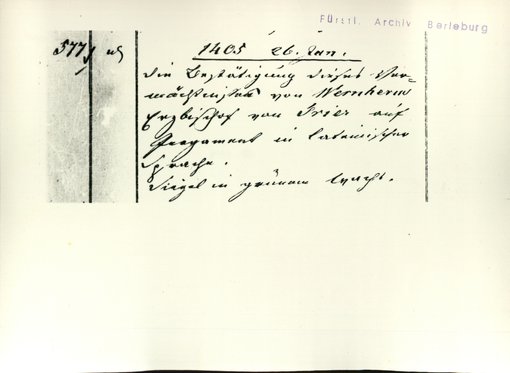 Fürstl. Archiv Berleburg
577
1405 26. Jan.
Die Bestätigung dieses Ver-
mächtnisses von Wernherus
Erzbischof von Trier auf
Pergament in lateinischer
Sprache.
Siegel in grünem Wachs.